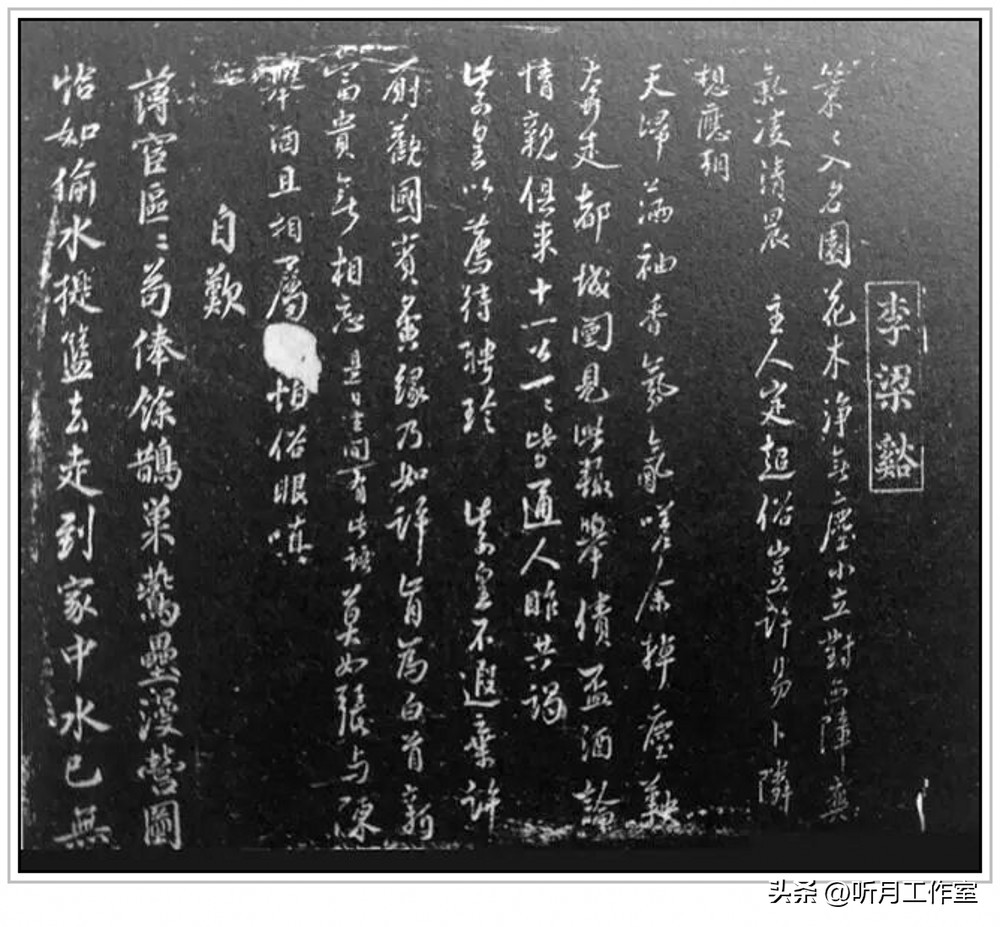 李梁谿
入名園花木淨無塵小立對無障爽
氣凌清晨 主人定超俗豈許易卜隣
想應朝
天歸滿袖香氛氳嗟余掉塵鞅
奔走都城闉見此輒舉債盃酒論
情親俱来十一公一〻皆通人昨共謁
紫皇以薦待聘珍 紫皇不遐棄許
廁觀國賓夤緣乃如許肯為白首新
富貴無相忘是日坐間有此語莫如張與陳
舉酒且相屬怕俗眼嗔
自歎
薄宦區〻苟俸餘鵲巢鶯壘漫營圖
恰如偷水提籃去走到家中水已無
头条 @听月工作室